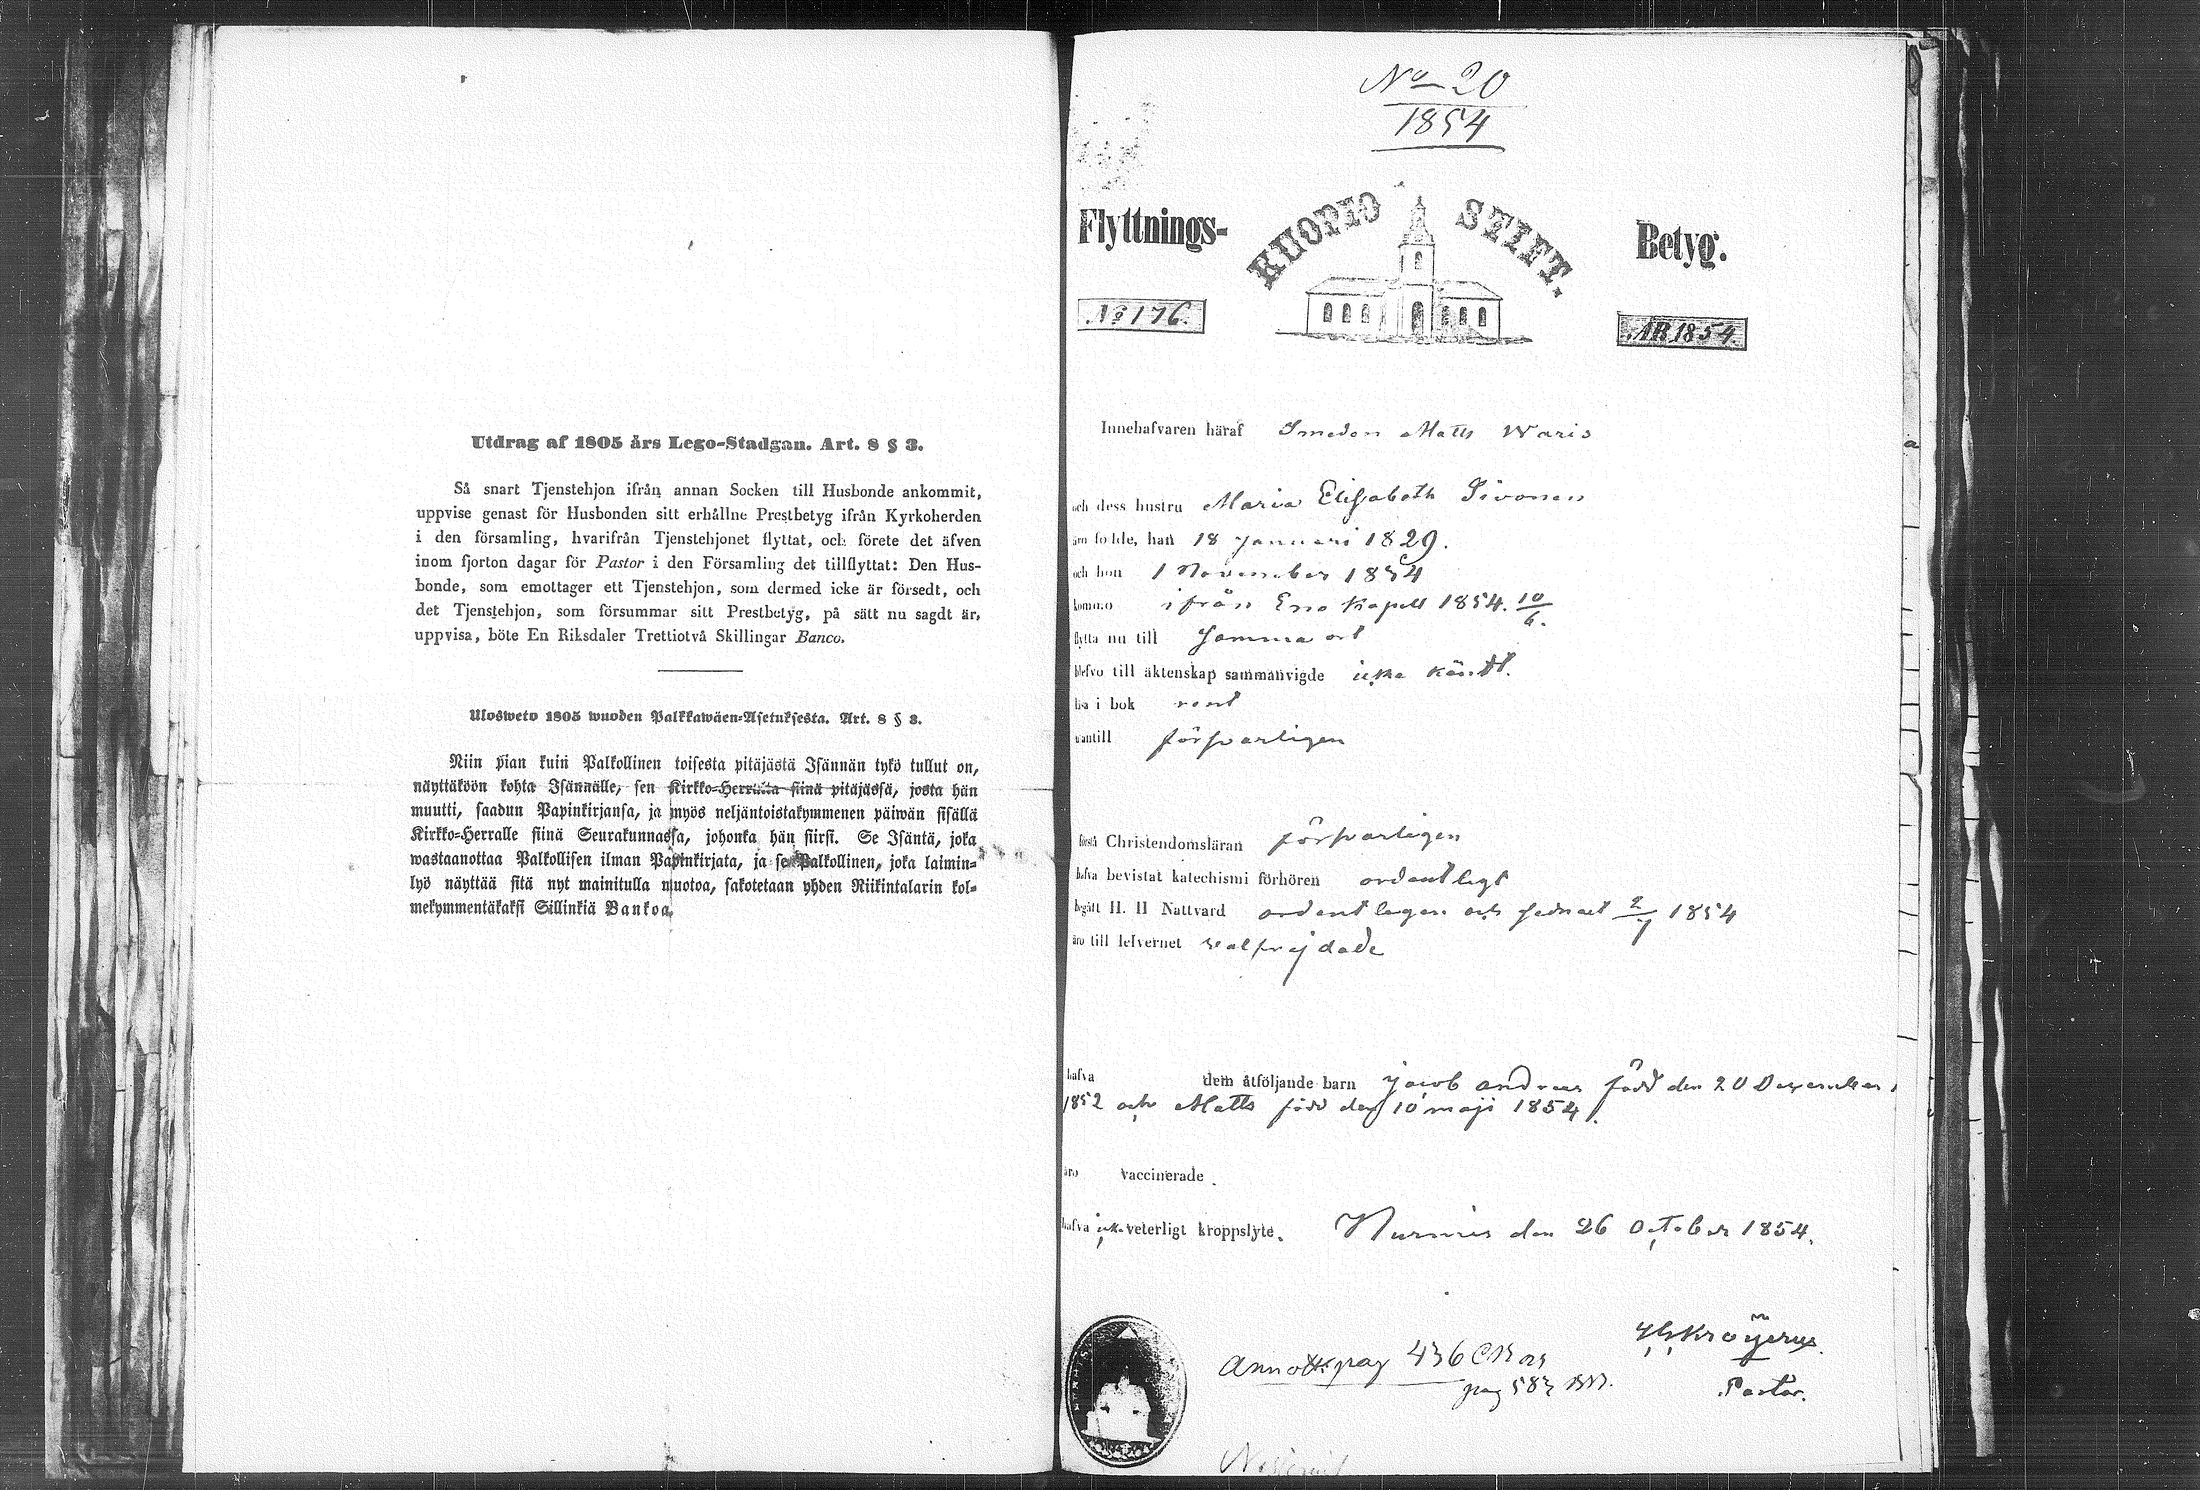 Utdrag af 1805 års Lego-Stadgan. Art. 8 § 3.
Så snart Tjenstehjon ifrån annan Socken till Husbonde ankommit,
uppvise genast för Husbonden sitt erhållne Prestbetyg ifrån Kyrkoherden
i den församling, hvarifrån Tjenstehjonet flyttat, och förete det äfven
inom fjorton dagar för Pastor i den Församling det tillflyttat: Den Hus-
bonde, som emottager ett Tjenstehjon, som dermed icke är försedt, och
det Tjenstehjon, som försummar sitt Prestbetyg, på sätt nu sagdt är,
uppvisa, böte En Riksdaler Trettiotvå Skillingar Banco.
Ulosweto 1805 wuoden Palkkawäen-Asetuksesta. Art. 8 § 3.
Niin pian kuin Palkollinen toisesta pitäjästä Isännän tykö tullut on,
näyttäköön kohta Isännälle, sen Kirkko-Herralta siinä pitäjässä, josta hän
muutti, saadun Papinkirjansa, ja myös neljäntoistakymmenen päiwän sisällä
Kirkko-Herralle siinä Seurakunnassa, johonka hän siirsi. Se Isäntä, joka
wastaanottaa Palkollisen ilman Papinkirjata, ja se Palkollinen, joka laimin-
lyö näyttää sitä nyt mainitulla muotoa, sakotetaan yhden Riikintalarin kol-
mekymmentäkaksi Sillinkiä Bankoa.
No 20
1854
Flyttnings- KUOPIO STIFT. Betyg.
No 176. ÅR 1854.
Innehafvaren häraf Smeden Matts Waris
och dess hustru Maria Elisabeth Sivonen
äro födde, han 18 Januari 1829.
och hon 1 November 1834
kommo ifrån Eno Kapell 1854. 10/6.
flytta nu till samma ort
blefvo till äktenskap sammanvigde icke kändt.
läsa i bok rent
utantill försvarligen
förstå Christendomsläran försvarligen
hafva bevistat katechismi förhören ordentligt
begått H. H Nattvard ordentligen och sednast 2/7 1854
äro till lefvernet välfrejdade
hafva dem åtföljande barn Jacob Andreas född den 20 December
1852 och Matts född den 10 Maji 1854.
äro vaccinerade.
hafva icke veterligt kroppslyte. Nurmis den 26 October 1854.
Krogerus.
Pastor.
Annott. pag 436
pag 583